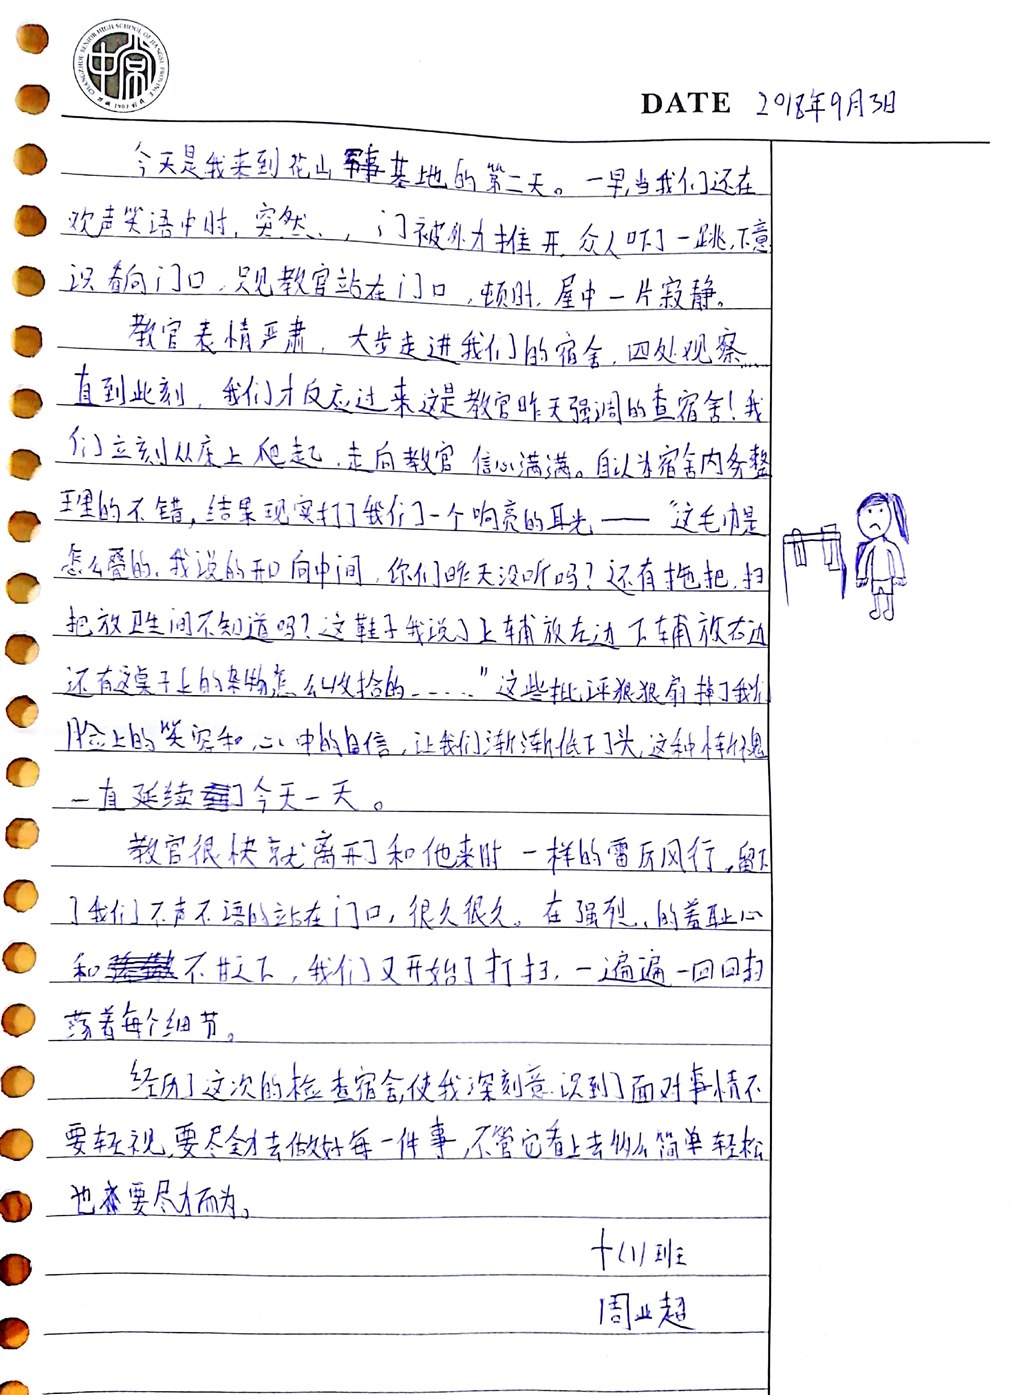 CHANGZHOU SENIOR HIGH SCHOOL OF JIANGSU PROVINCE
1907
DATE 2018年9月3日
今天是我来到花山军事基地的第二天。一早,当我们还在
欢声笑语中时,突然,门被外力推开,众人吓了一跳,下意
识看向门口,只见教官站在门口,顿时,屋中一片寂静。
教官表情严肃,大步走进我们的宿舍,四处观察……
直到此刻,我们才反应过来这是教官昨天强调的查宿舍!我
们立刻从床上爬起,走向教官信心满满。自认为宿舍内务整
理的不错,结果现实打了我们一个响亮的耳光——“这毛巾是
怎么叠的,我说的开口向中间,你们昨天没听吗?还有拖把,扫
把放卫生间不知道吗?这鞋子我说了上铺放左边下铺放右边
还有这桌子上的杂物怎么收拾的……”这些批评狠狠扇掉了我们
脸上的笑容和心中的自信,让我们渐渐低下了头,这种惭愧
一直延续了今天一天。
教官很快就离开了和他来时一样的雷厉风行,留下
了我们不声不语的站在门口,很久很久。在强烈的羞耻心
和不甘之下,我们又开始了打扫,一遍遍一回回扫
荡着每个细节。
经历了这次的检查宿舍,使我深刻意识到了面对事情不
要轻视,要尽全力去做好每一件事,不管它看上去多么简单轻松
也要尽力而为。
十(1)班
周业超